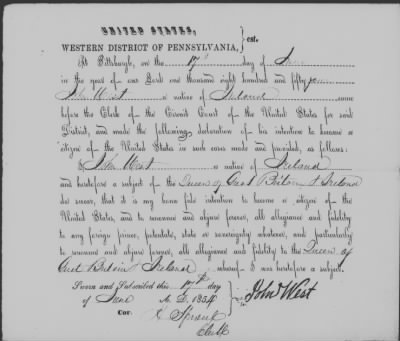 UNITED STATES,
WESTERN DISTRICT OF PENNSYLVANIA, } sct.
At Pittsburgh, on the 17th day of June
in the year of our Lord one thousand eight hundred and fifty four
John West a native of Ireland came
before the Clerk of the Circuit Court of the United States for said
District, and made the following declaration of his intention to become a
citizen of the United States in such cases made and provided, as follows:
I John West a native of Ireland
and heretofore a subject of the Queen of Great Britain & Ireland
do swear, that it is my bona fide intention to become a citizen of the
United States, and to renounce and abjure forever, all allegiance and fidelity
to any foreign prince, potentate, state or sovereignty whatever, and particularly
to renounce and abjure forever, all allegiance and fidelity to the Queen of
Great Britain & Ireland whereof I was heretofore a subject.
Sworn and Subscribed this 17th day
of June A. D. 1854
John West
Cor. Sproul
Clerk